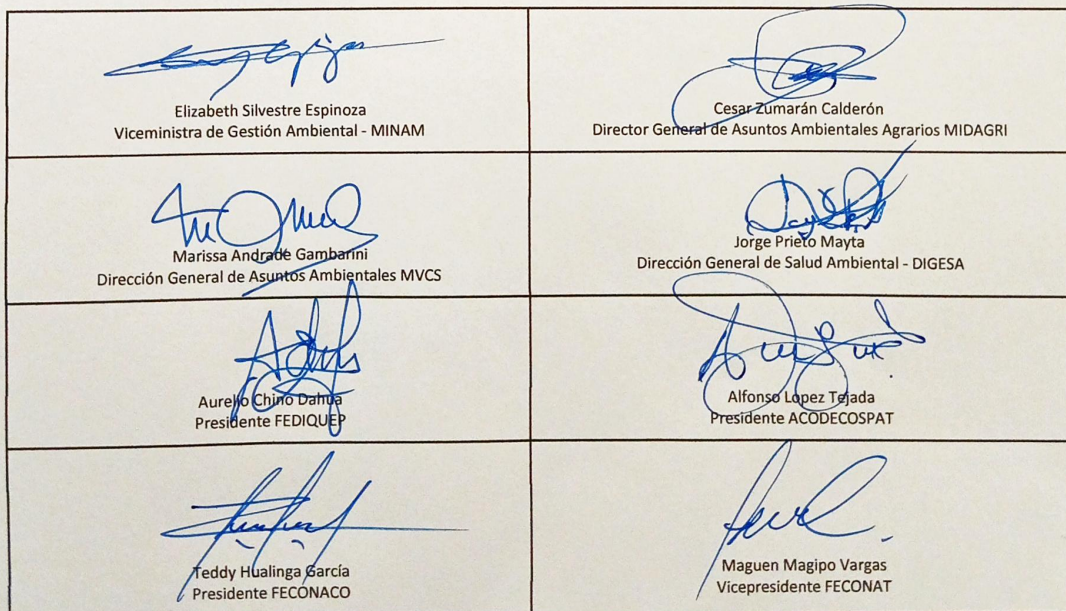 Elizabeth Silvestre Espinoza
Viceministra de Gestión Ambiental - MINAM
Cesar Zumarán Calderón
Director General de Asuntos Ambientales Agrarios MIDAGRI
Marissa Andrade Gambarini
Dirección General de Asuntos Ambientales MVCS
Jorge Prieto Mayta
Dirección General de Salud Ambiental - DIGESA
Aurelio Chino Dahua
Presidente FEDIQUEP
Alfonso Lopez Tejada
Presidente ACODECOSPAT
Teddy Hualinga García
Presidente FECONACO
Maguen Magipo Vargas
Vicepresidente FECONAT